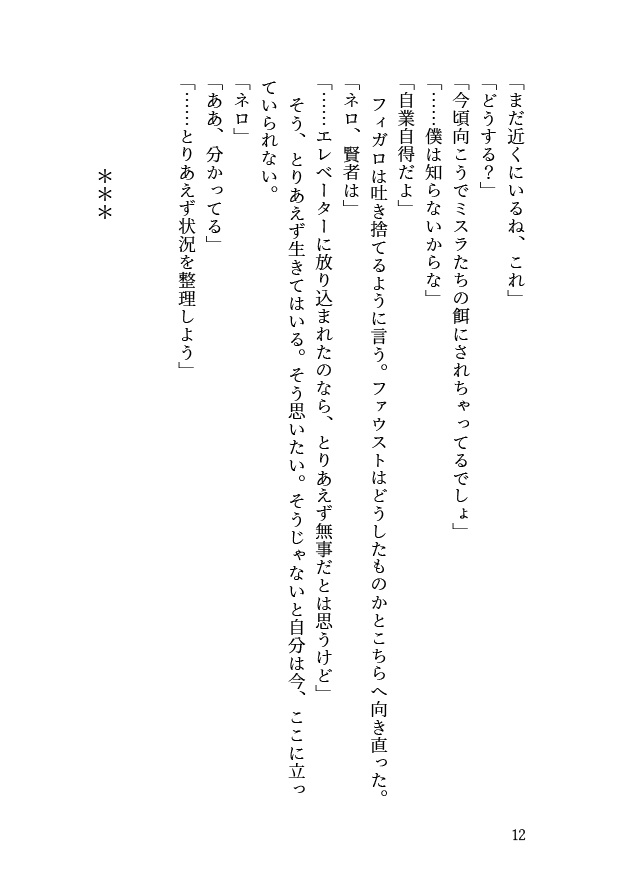 「まだ近くにいるね、これ」
「どうする？」
「今頃向こうでミスラたちの餌にされちゃってるでしょ」
「……僕は知らないからな」
「自業自得だよ」
　フィガロは吐き捨てるように言う。ファウストはどうしたものかとこちらへ向き直った。
「ネロ、賢者は」
「……エレベーターに放り込まれたのなら、とりあえず無事だとは思うけど」
　そう、とりあえず生きてはいる。そう思いたい。そうじゃないと自分は今、ここに立っ
ていられない。
「ネロ」
「ああ、分かってる」
「……とりあえず状況を整理しよう」
＊＊＊
12